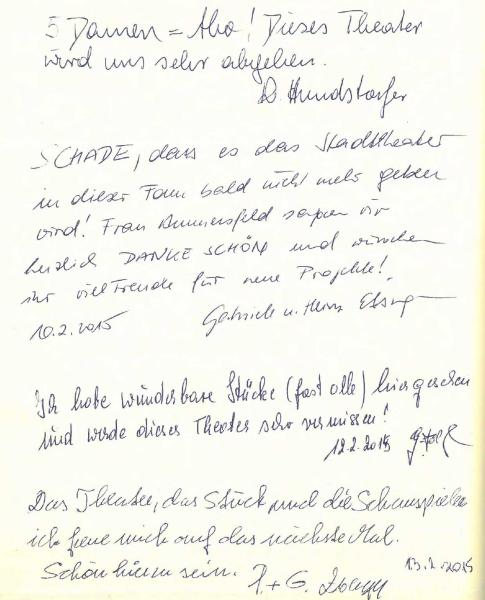 5 Damen = Aha! Dieses Theater
wird uns sehr abgehen.
Hundstorfer
SCHADE, dass es das Stadttheater
in dieser Form bald nicht mehr geben
wird! Frau Anmersfeld sagen wir
herzlich DANKE SCHÖN und wünschen
ihr viel Freude für neue Projekte!
10.2.2015 Gabriele u. Heinz
Ich habe wunderbare Stücke (fast alle) hier gesehen
und werde dieses Theater sehr vermissen!
12.2.2015
Das Theater, das Stück und die Schauspieler
ich freue mich auf das nächste Mal.
Schön hier zu sein. P. + G.
13.2.2015